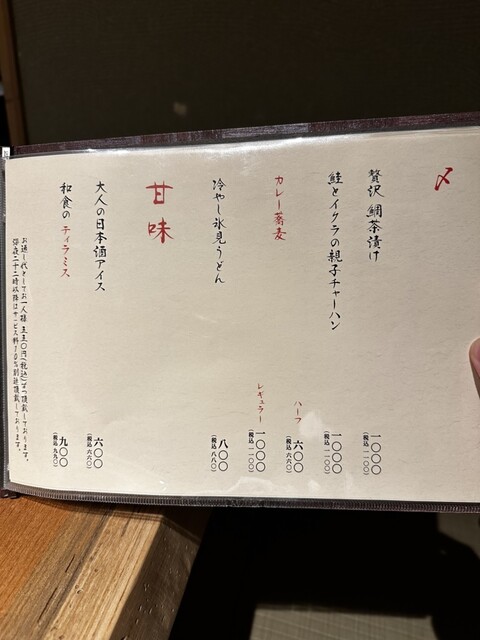 〆
贅沢 鯛茶漬け
一〇〇〇
(税込 一一〇〇)
鮭とイクラの親子チャーハン
一〇〇〇
(税込 一一〇〇)
カレー蕎麦
ハーフ
六〇〇
(税込 六六〇)
レギュラー
一〇〇〇
(税込 一一〇〇)
冷やし氷見うどん
八〇〇
(税込 八八〇)
甘味
大人の日本酒アイス
六〇〇
(税込 六六〇)
和食のティラミス
九〇〇
(税込 九九〇)
お通し代としてお一人様 五五〇円(税込)ずつ頂戴しております。
深夜二十二時以降はサービス料10%別途頂戴しております。